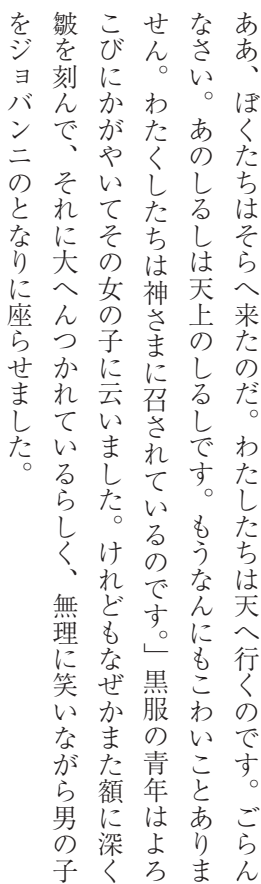 ああ、ぼくたちはそらへ来たのだ。わたしたちは天へ行くのです。ごらん
なさい。あのしるしは天上のしるしです。もうなんにもこわいことありま
せん。わたくしたちは神さまに召されているのです。」黒服の青年はよろ
こびにかがやいてその女の子に云いました。けれどもなぜかまた額に深く
皺を刻んで、それに大へんつかれているらしく、無理に笑いながら男の子
をジョバンニのとなりに座らせました。